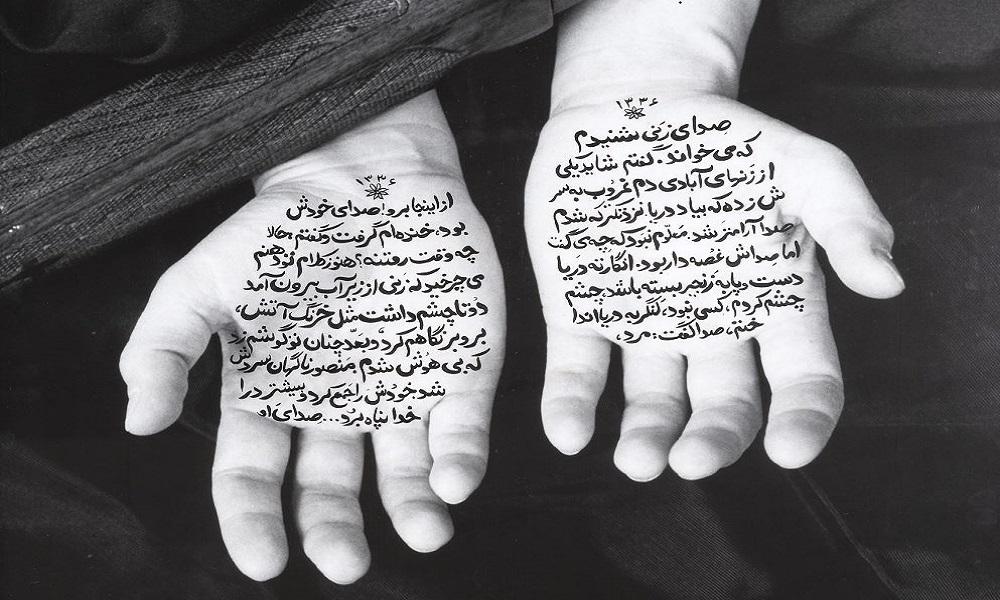 ۱۳۳۶
صدای زنی شنیدم
که می خواند. گفتم شاید یکی
از زنهای آبادی دم غروب به سر
ش زده که بیاد دریا. نزدیکتر که شدم
صدا آرامتر شد. معلوم نبود که چه می گفت
اما صداش غصه دار بود. انگار ته دریا
دست و پا به زنجیر بسته باشند. چشم
چشم کردم، کسی نبود، لنگر به دریا اندا
ختم، صدا گفت: مرد،
۱۳۳۶
از اینجا برو! صدای خودش
بود. خنده ام گرفت و گفتم حالا
چه وقت رفتنه؟ هنوز کلام تو دهنم
می چرخید که زنی از زیر آب بیرون آمد
دو تا چشم داشت مثل خرنگ آتش،
بر و بر نگاهم کرد و بعد چنان تو گوشم زد
که بی هوش شدم. منصور ناگهان سردش
شد خودش را جمع کرد و بیشتر در
خدا پناه برد... صدای او